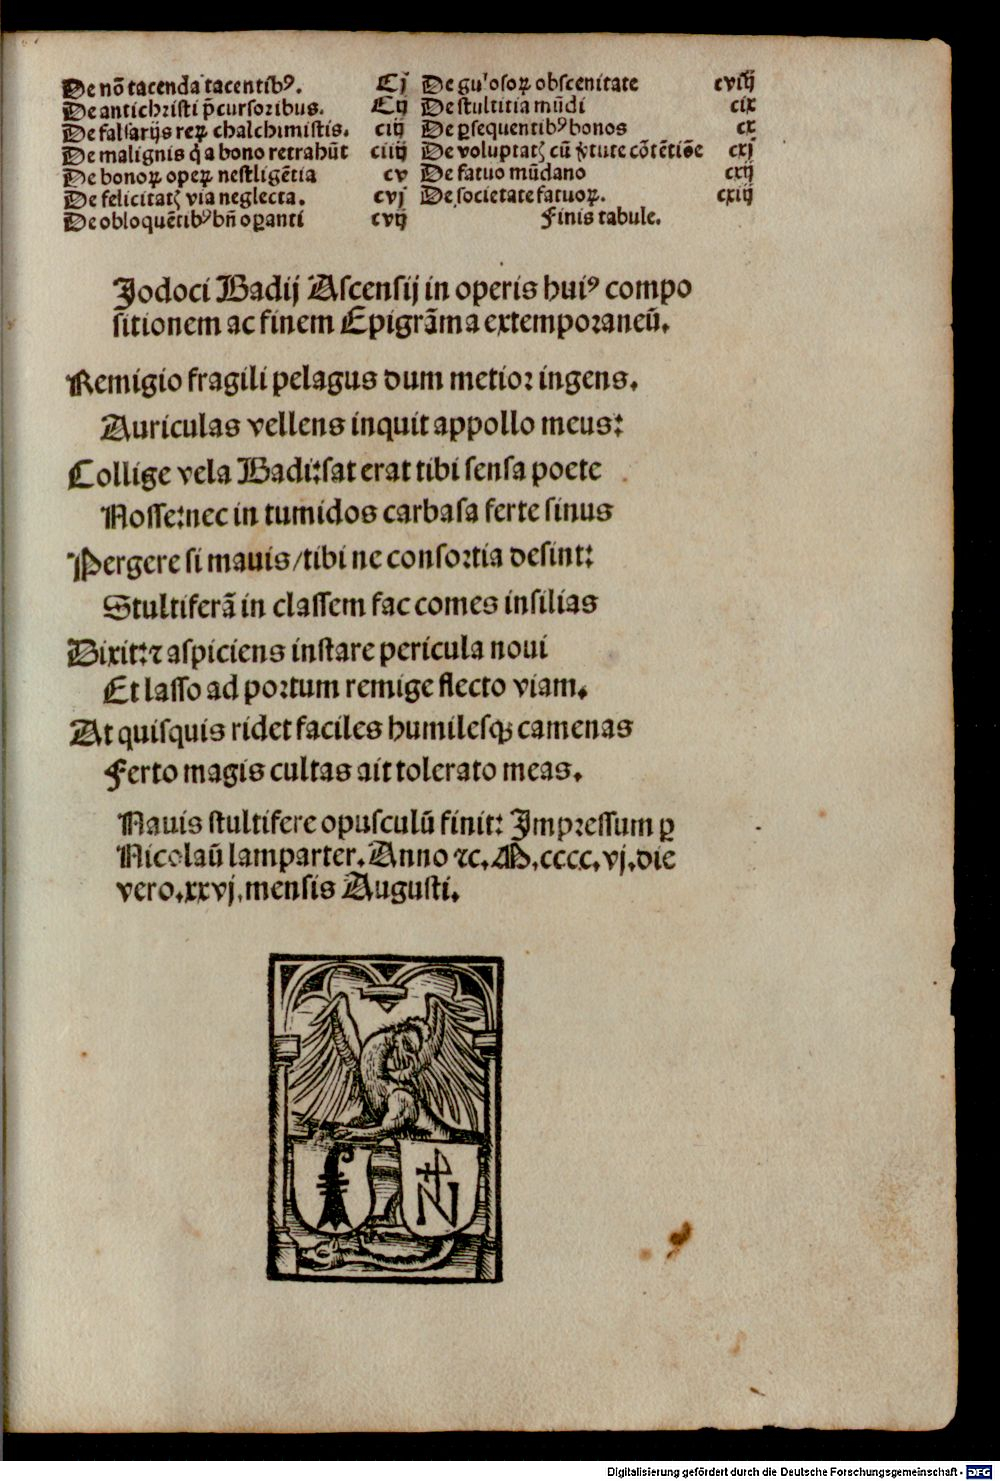 De nõ tacenda tacentibꝰ. Cj
De antichristi p̃cursoribus. Cij
De falsarijs reꝝ chalchimistis. ciij
De malignis q̃ a bono retrahũt ciiij
De bonoꝝ opeꝝ nestligẽtia cv
De felicitatꝭ via neglecta. cvj
De obloquẽtibꝰ bñ oꝑanti cvij
De obscenitate cviij
De stultitia mũdi cix
De ꝑsequentibꝰ bonos cx
De voluptatꝭ cũ v̓tute cõtẽtiõe cxj
De fatuo mũdano cxij
De societate fatuoꝝ. cxiij
Finis tabule.
Jodoci Badij Ascensij in operis huiꝰ compo
sitionem ac finem Epigrãma extemporaneũ.
Remigio fragili pelagus dum metior ingens.
Auriculas vellens inquit appollo meus:
Collige vela Badi: sat erat tibi sensa poete
Nosse: nec in tumidos carbasa ferte sinus
Pergere si mauis/tibi ne consortia desint:
Stultiferã in classem fac comes insilias
Dixit: ⁊ aspiciens instare pericula noui
Et lasso ad portum remige flecto viam.
At quisquis ridet faciles humilesqꝫ camenas
Ferto magis cultas ait tolerato meas.
Nauis stultifere opusculũ finit: Jmpressum ꝑ
Nicolaũ lamparter. Anno ⁊c. M.cccc.vj. die
vero. xxvj. mensis Augusti.
N
Digitalisierung gefördert durch die Deutsche Forschungsgemeinschaft - DFG